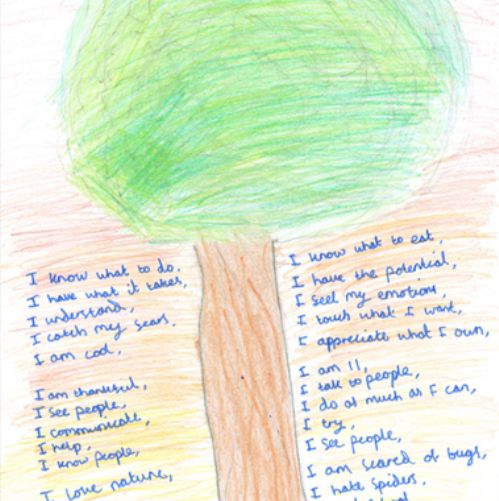 I know what to do,
I have what it takes,
I understand,
I catch my fears.
I am cool,
I am thankful,
I see people,
I communicate,
I help,
I know people,
I love nature,
I know what to eat,
I have the potential,
I feel my emotions,
I touch what I want,
I appreciate what I own,
I am 11,
I talk to people,
I do as much as I can,
I try,
I see people,
I am scared of bugs,
I hate spiders.